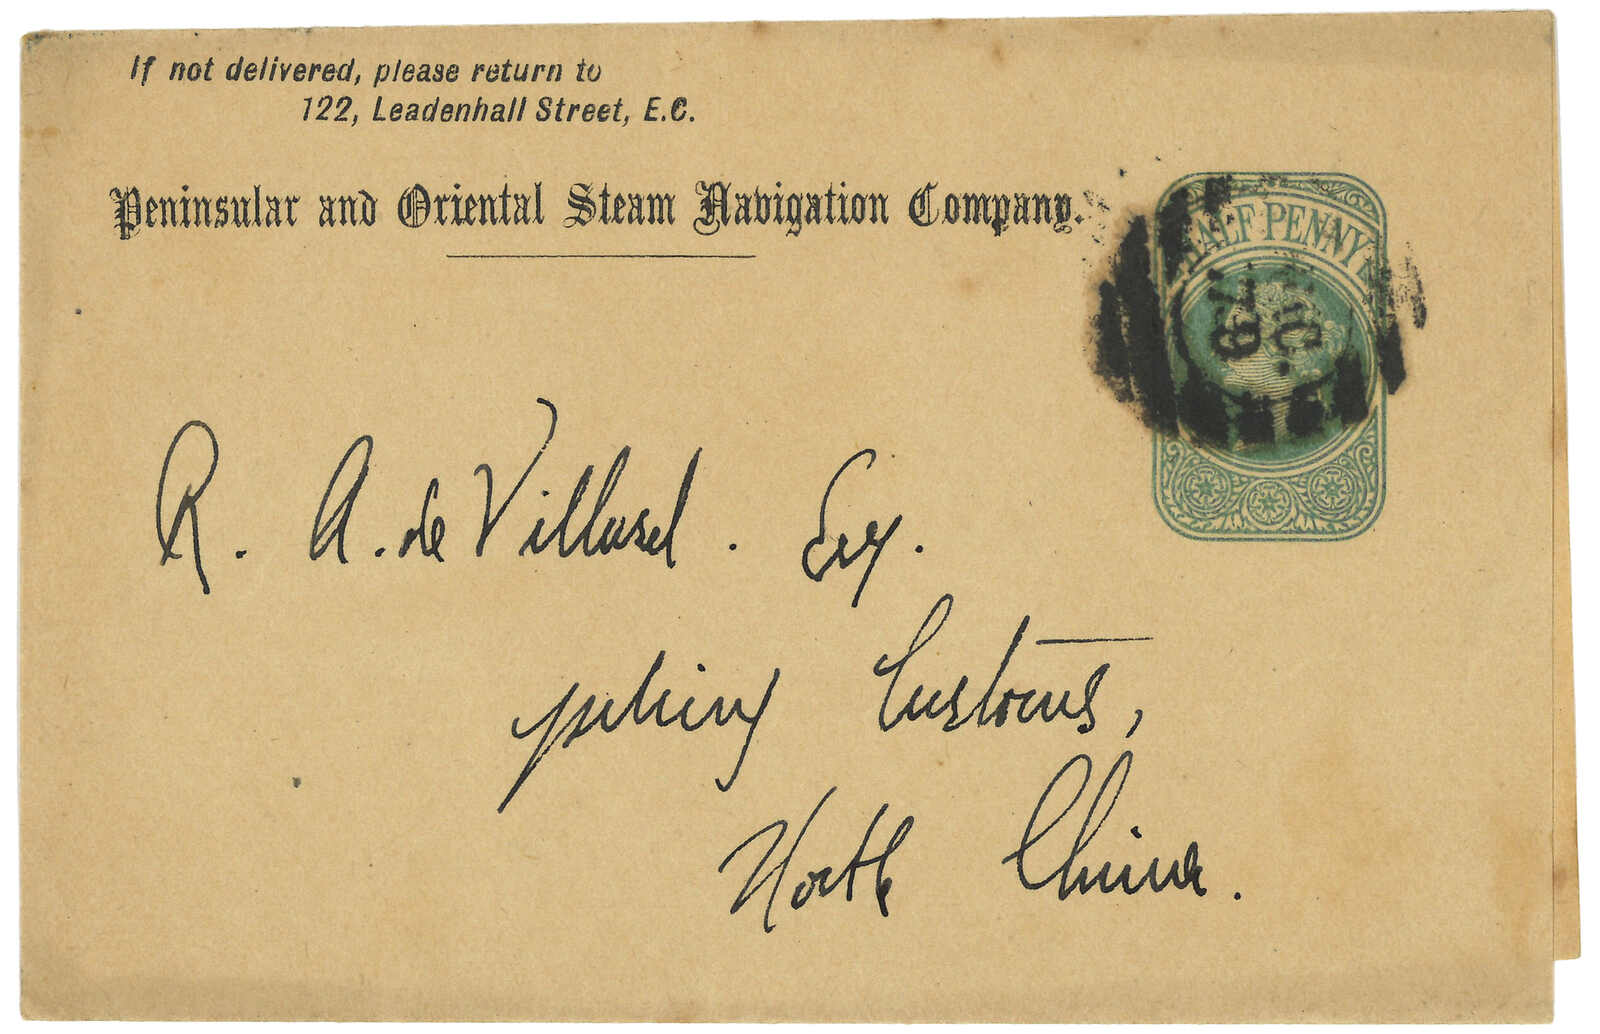 If not delivered, please return to
122, Leadenhall Street, E.C.
Peninsular and Oriental Steam Navigation Company.
HALF PENNY
79
R. A. de Villard. Esq.
Peking Customs,
North China.